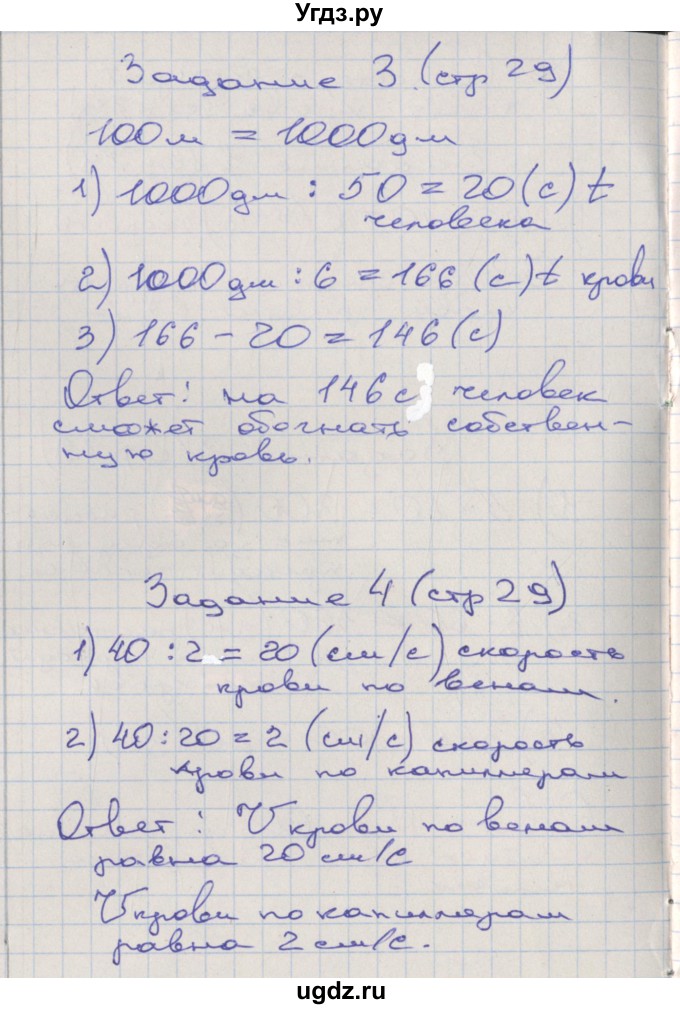 Угдз.ру
Задание 3 (стр 29)
100м = 1000дм
1) 1000дм : 50 = 20 (с) t
человека
2) 1000дм : 6 = 166 (с) t крови
3) 166 - 20 = 146 (с)
Ответ: на 146с человек
сможет обогнать собствен-
ную кровь.
Задание 4 (стр 29)
1) 40 : 2 = 20 (см/с) скорость
крови по венам.
2) 40 : 20 = 2 (см/с) скорость
крови по капиллерам
Ответ: V крови по венам
равна 20 см/с
V крови по капиллерам
равна 2 см/с.
ugdz.ru